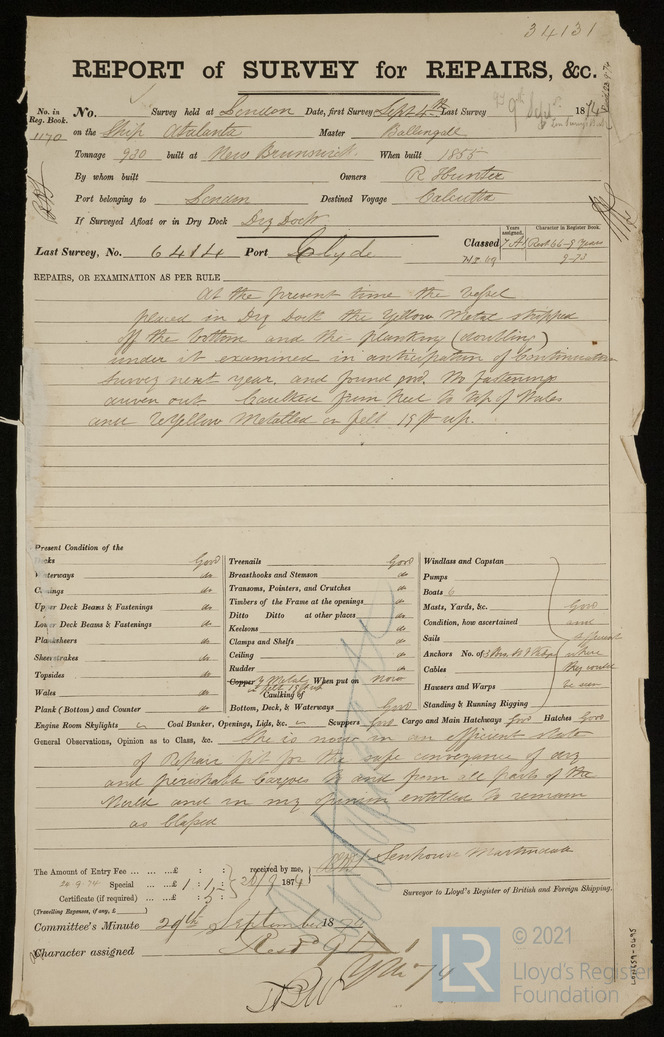 34131
REPORT of SURVEY for REPAIRS, &c.
No. in Reg. Book. No. Survey held at London Date, first Survey Sept 4th Last Survey 9th Sept 1874
1170 on the Ship Atalanta Master Ballingall
Tonnage 930 built at New Brunswick When built 1855
By whom built Owners R Hunter
Port belonging to London Destined Voyage Calcutta
If Surveyed Afloat or in Dry Dock Dry Dock
Last Survey, No. 6414 Port Clyde Classed
Years assigned. Character in Register Book.
7 A1 Rest 66-9 Years
9-73
REPAIRS, OR EXAMINATION AS PER RULE
At the present time the vessel
placed in Dry Dock the Yellow Metal stripped
off the bottom and the planking (doubling)
under it examined in anticipation of Continuation
Survey next year. and found good. No fastenings
driven out Caulked from keel to top of Wales
and Yellow Metalled on felt 15 ft up.
Present Condition of the
Decks Good
Waterways do
Comings do
Upper Deck Beams & Fastenings do
Lower Deck Beams & Fastenings do
Planksheers do
Sheerstrakes do
Topsides do
Wales do
Plank (Bottom) and Counter do
Treenails Good
Breasthooks and Stemson do
Transoms, Pointers, and Crutches do
Timbers of the Frame at the openings do
Ditto Ditto at other places do
Keelsons do
Clamps and Shelfs do
Ceiling do
Rudder do
Copper Y Metal When put on Now
on felt 15 feet
Caulking of
Bottom, Deck, & Waterways Good
Windlass and Capstan
Pumps
Boats 6
Masts, Yards, &c. Good
Condition, how ascertained and
Sails efficient
Anchors No. of 3 where
Cables they could
Hawsers and Warps be seen
Standing & Running Rigging
Engine Room Skylights Coal Bunker, Openings, Lids, &c. Scuppers Good Cargo and Main Hatchways Good Hatches Good
General Observations, Opinion as to Class, &c. She is now in an efficient state
of Repair fit for the safe conveyance of dry
and perishable Cargoes to and from all parts of the
World and in my opinion entitled to remain
as Classed
The Amount of Entry Fee ... ... £ : : received by me,
20.9.74 Special ... ... £ 1 : 1 : 1874
Certificate (if required) ... £ : 5 :
(Travelling Expenses, if any, £ )
Senhouse Martindale
Surveyor to Lloyd's Register of British and Foreign Shipping.
Committee's Minute 29th September 1874
Character assigned
LR
© 2021
Lloyd's Register
Foundation